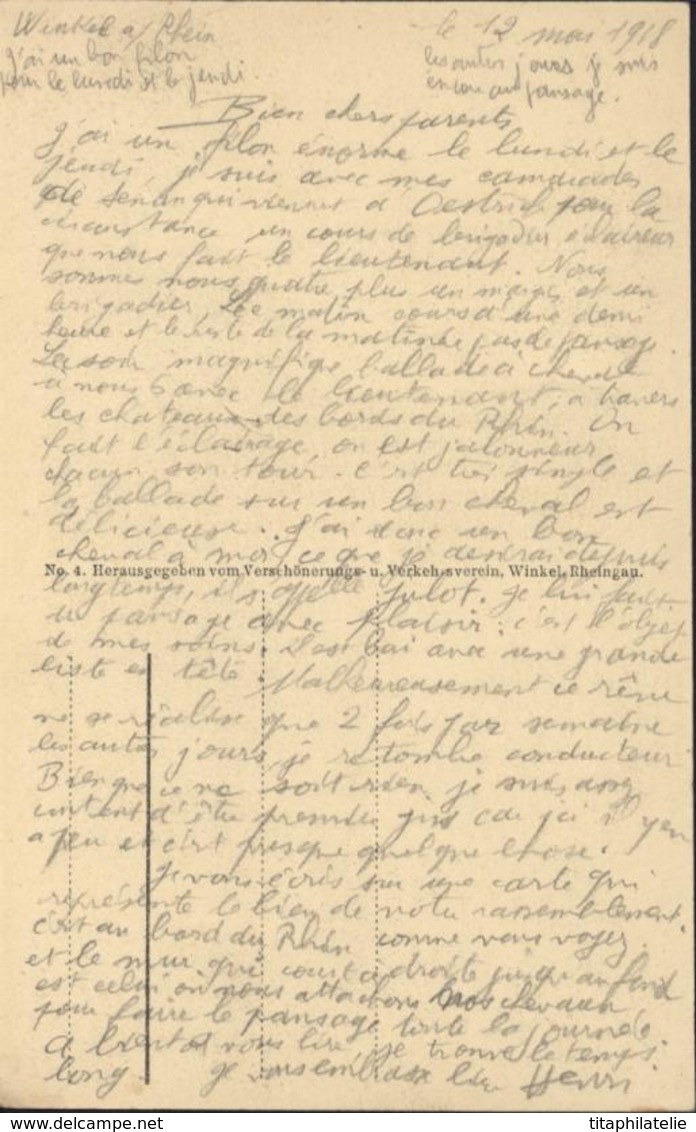 Winkel a/ Rhein
le 12 mai 1918
J'ai un bon filon
pour le lundi et le jeudi.
les autres jours je suis
encore au pansage.
Bien chers parents
J'ai un filon énorme le lundi et le
jeudi, je suis avec mes camarades
de qui viennent à Oestrich pour la
circonstance un cours de brigadier éclaireur
que nous fait le lieutenant. Nous
sommes nous quatre plus un margis et un
brigadier. Le matin cours d'une demi
heure et le reste de la matinée pas de pansage.
Le soir magnifique ballade à cheval
a nous 6 avec le lieutenant, a travers
les chateaux des bords du Rhin. On
fait l'éclairage, on est jalonneur
chacun son tour. C'est très simple et
la ballade sur un bon cheval est
délicieuse. J'ai donc un bon
cheval à moi ce que je désirais depuis
No. 4. Herausgegeben vom Verschönerungs- u. Verkehrsverein, Winkel, Rheingau.
longtemps, il s'appelle Julot. Je lui fais
le pansage avec plaisir : c'est l'objet
de mes soins. il est bai avec une grande
liste en tête. Malheureusement ce rêve
ne se réalise que 2 fois par semaine
les autres jours, je retombe conducteur
Bien que ce ne soit rien, je suis assez
content d'être premier jus car ici il y en
a peu et c'est presque quelque chose.
Je vous écris sur une carte qui
représente le lieu de notre rassemblement.
c'est au bord du Rhin comme vous voyez
et le mur qui court à droite jusqu'au fond
est celui où nous attachons nos chevaux
pour faire le pansage toute la journée
A bientot vous lire je trouve le temps
long. Je vous embrasse bien Henri
titaphilatelie